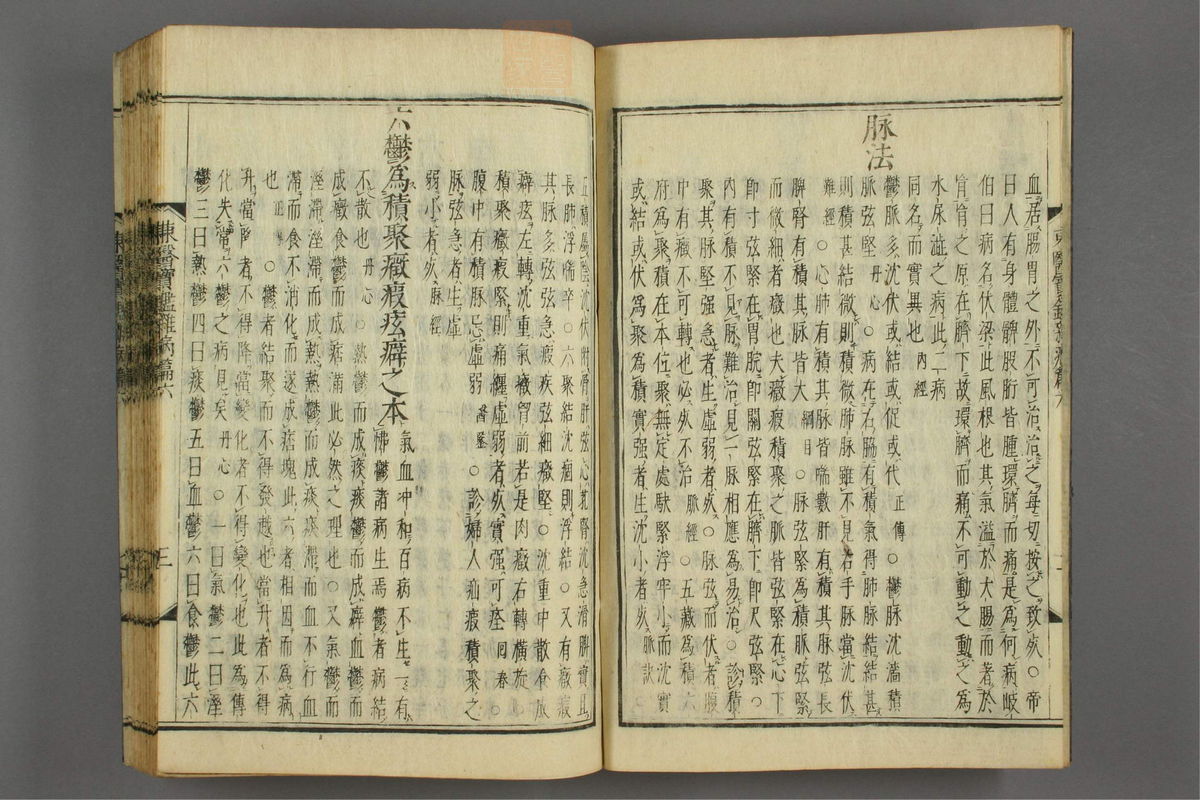 血居腸胃之外不可治治之每切按之致死○帝
曰人有身體髀股胻皆腫環臍而痛是爲何病岐
伯曰病名伏梁此風根也其氣溢於大腸而著於
肓肓之原在臍下故環臍而痛不可動之動之爲
水尿澁之病此二病
同名而實異也內經
脉法
鬱脈多沈伏或結或促或代正傳○鬱脉沈濇積
脈弦堅丹心○病在右脇有積氣得肺脉結結甚
則積甚結微則積微肺脉雖不見右手脉當沈伏
難經○心肺有積其脉皆喘數肝有積其脉弦長
脾腎有積其脉皆大綱目○脉弦緊爲積脈弦緊
而微細者癥也夫癥瘕積聚之脈皆弦緊在心下
卽寸弦緊在胃脘卽關弦緊在臍下卽尺弦緊○
內有積不見脉難治見一脉相應爲易治○診積
聚其脉堅强急者生虛弱者死○脉弦而伏者腹
中有癥不可轉也必死不治脈經○五藏爲積六
府爲聚積在本位聚無定處駃緊浮牢小而沈實
或結或伏爲聚爲積實强者生沈小者死脈訣
五積屬陰沈伏附骨肝弦心芤腎沈急滑脾實且
長肺浮喘卒○六聚結沈痼則浮結○又有癥瘕
其脉多弦弦急瘕疾弦細癥堅○沈重中散食成
癖痃左轉沈重氣癥胷前若是肉癥右轉橫旋○
積聚癥瘕緊則痛纏虛弱者死實强可痊回春○
腹中有積脉忌虛弱醫鑒○診婦人疝瘕積聚之
脉弦急者生虛
弱小者死脉經
六鬱爲積聚癥瘕痃癖之本
氣血冲和百病不生一有
怫鬱諸病生焉鬱者病結
不散也丹心○熱鬱而成痰痰鬱而成癖血鬱而
成癥食鬱而成痞滿此必然之理也○又氣鬱而
溼滯溼滯而成熱熱鬱而成痰痰滯而血不行血
滯而食不消化而遂成痞塊此六者相因而爲病
也正傳○鬱者結聚而不得發越也當升者不得
升當降者不得降當變化者不得變化也此爲傳
化失常六鬱之病見矣丹心○一曰氣鬱二曰溼
鬱三曰熱鬱四曰痰鬱五曰血鬱六曰食鬱此六
東醫寶鑑雜病篇六
三